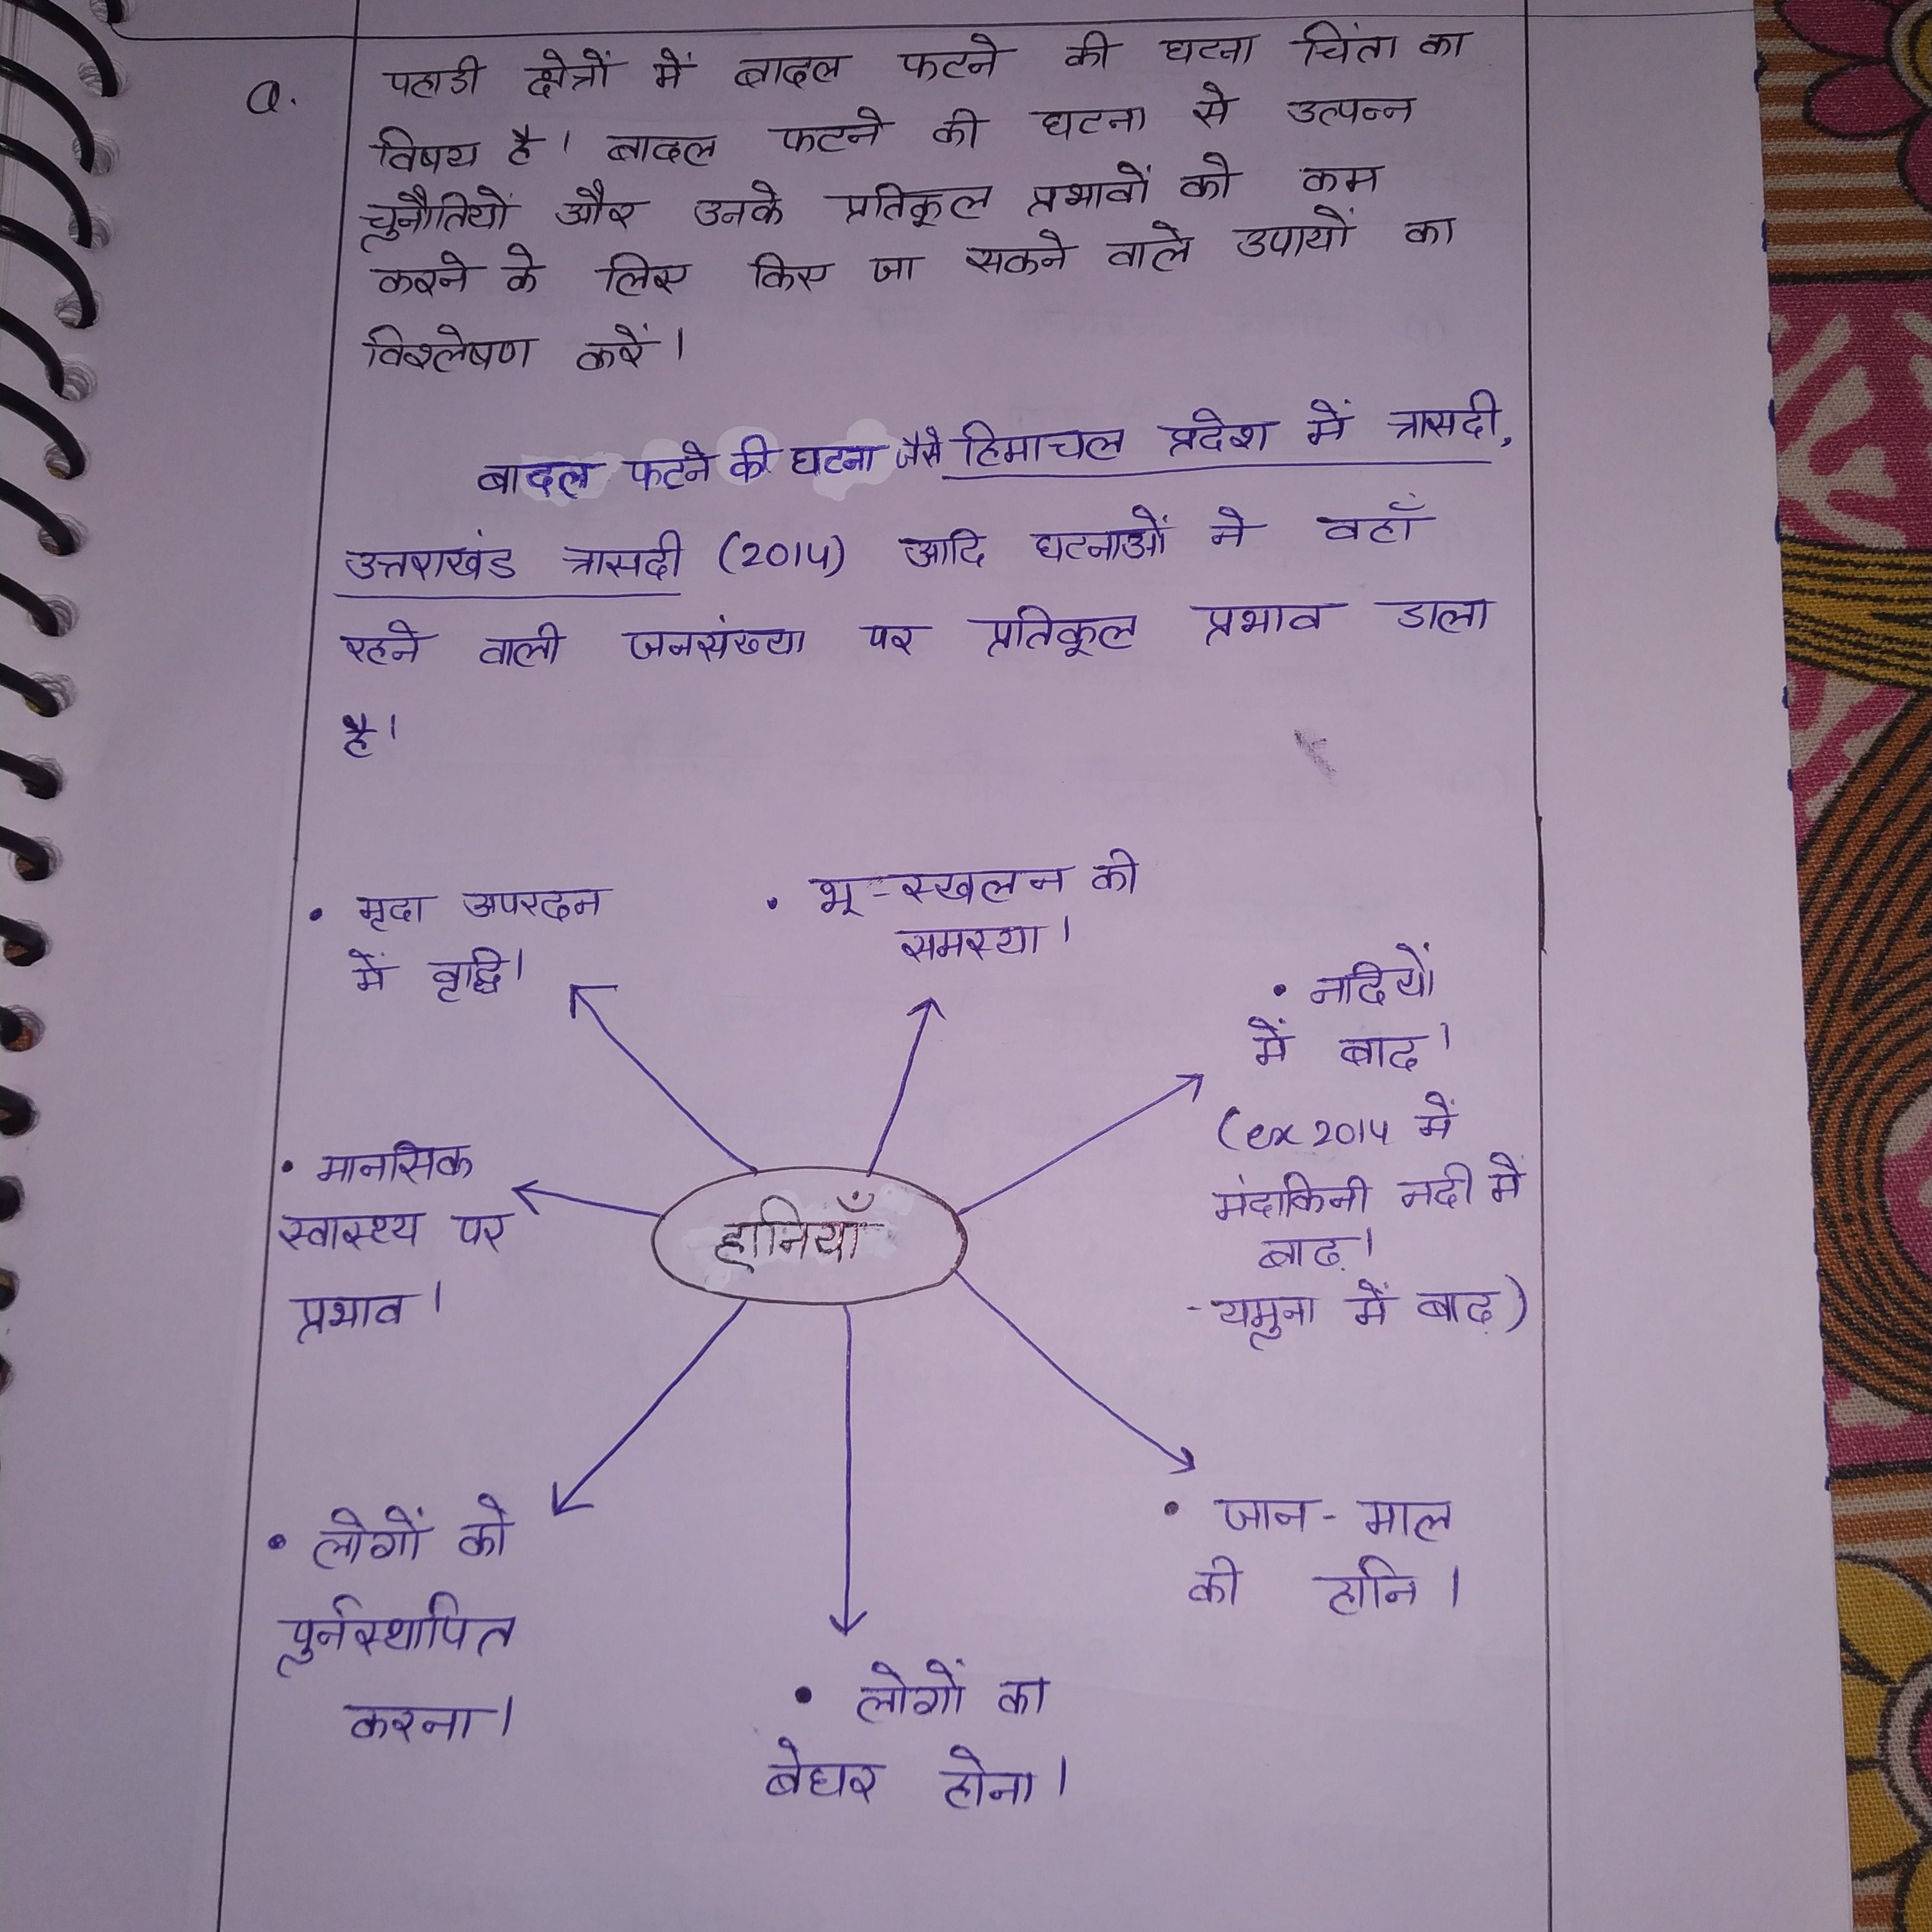 Q.
पहाडी क्षेत्रों में बादल फटने की घटना चिंता का
विषय है। बादल फटने की घटना से उत्पन्न
चुनौतियों और उनके प्रतिकूल प्रभावों को कम
करने के लिए किए जा सकने वाले उपायों का
विश्लेषण करें।
बादल फटने की घटना जैसे हिमाचल प्रदेश में त्रासदी,
उत्तराखंड त्रासदी (2014) आदि घटनाओं ने वहाँ
रहने वाली जनसंख्या पर प्रतिकूल प्रभाव डाला
है।
• मृदा अपरदन
में वृद्धि।
• भू-स्खलन की
समस्या।
• नदियों
में बाढ।
(ex 2014 में
मंदाकिनी नदी में
बाढ़।
-यमुना में बाढ़)
• मानसिक
स्वास्थ्य पर
प्रभाव।
हानियाँ
• जान-माल
की हानि।
• लोगों को
पुर्नस्थापित
करना।
• लोगों का
बेघर होना।